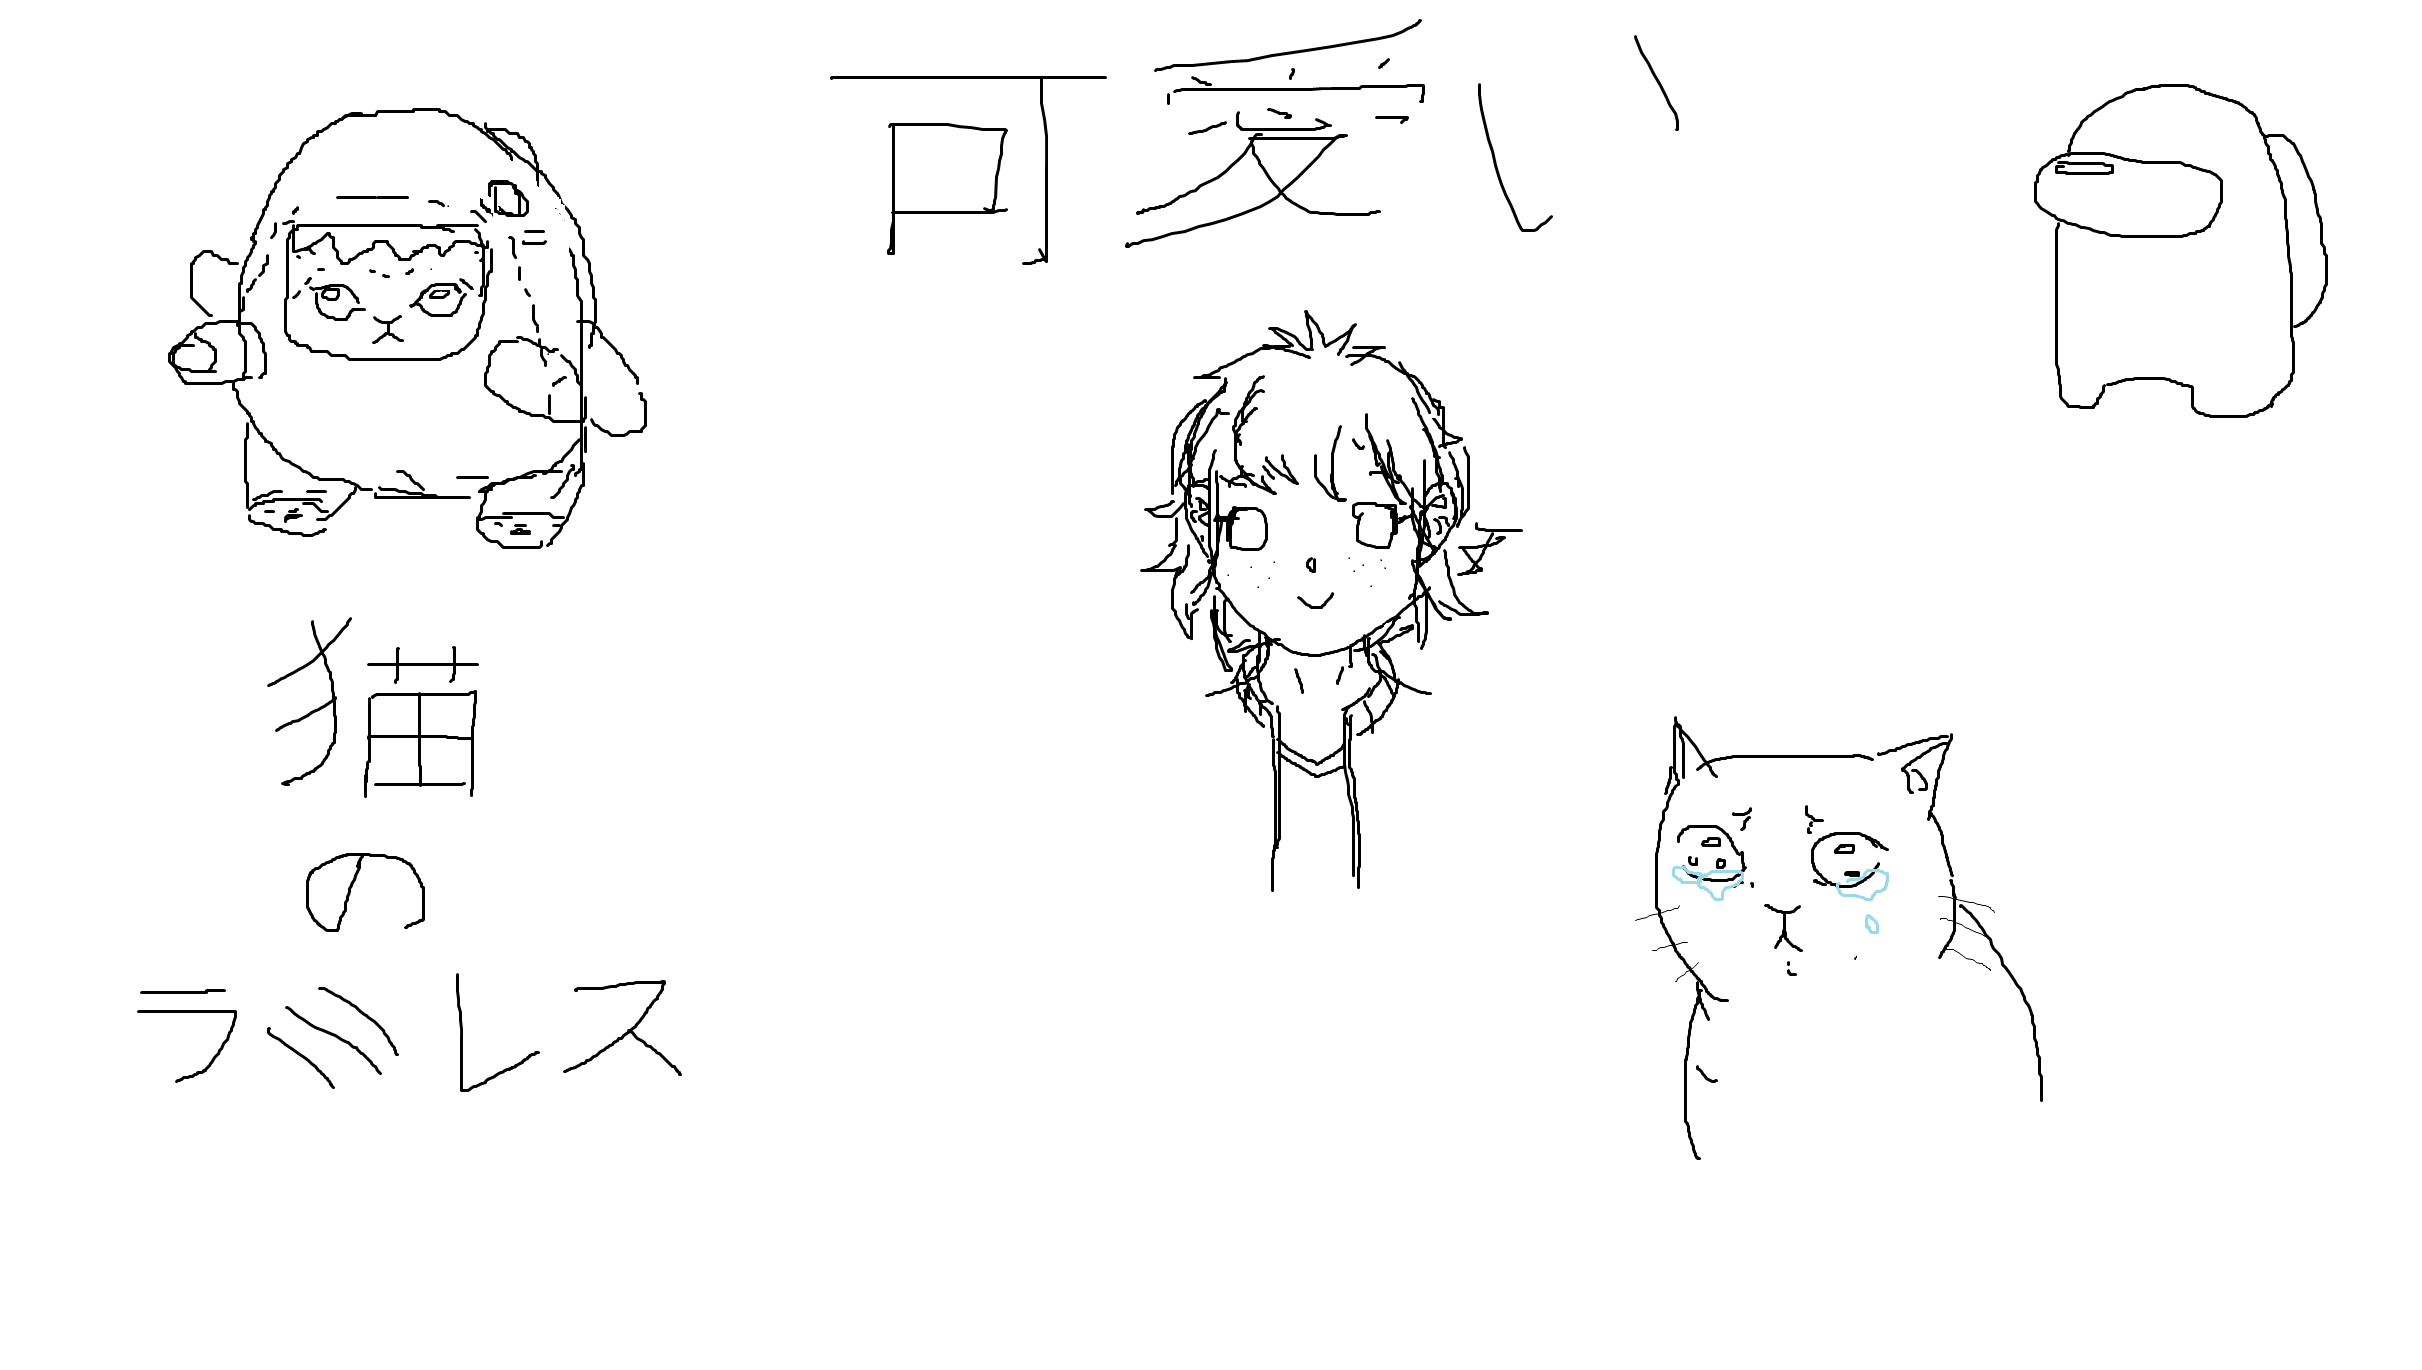 可愛い
猫
の
ラミレス